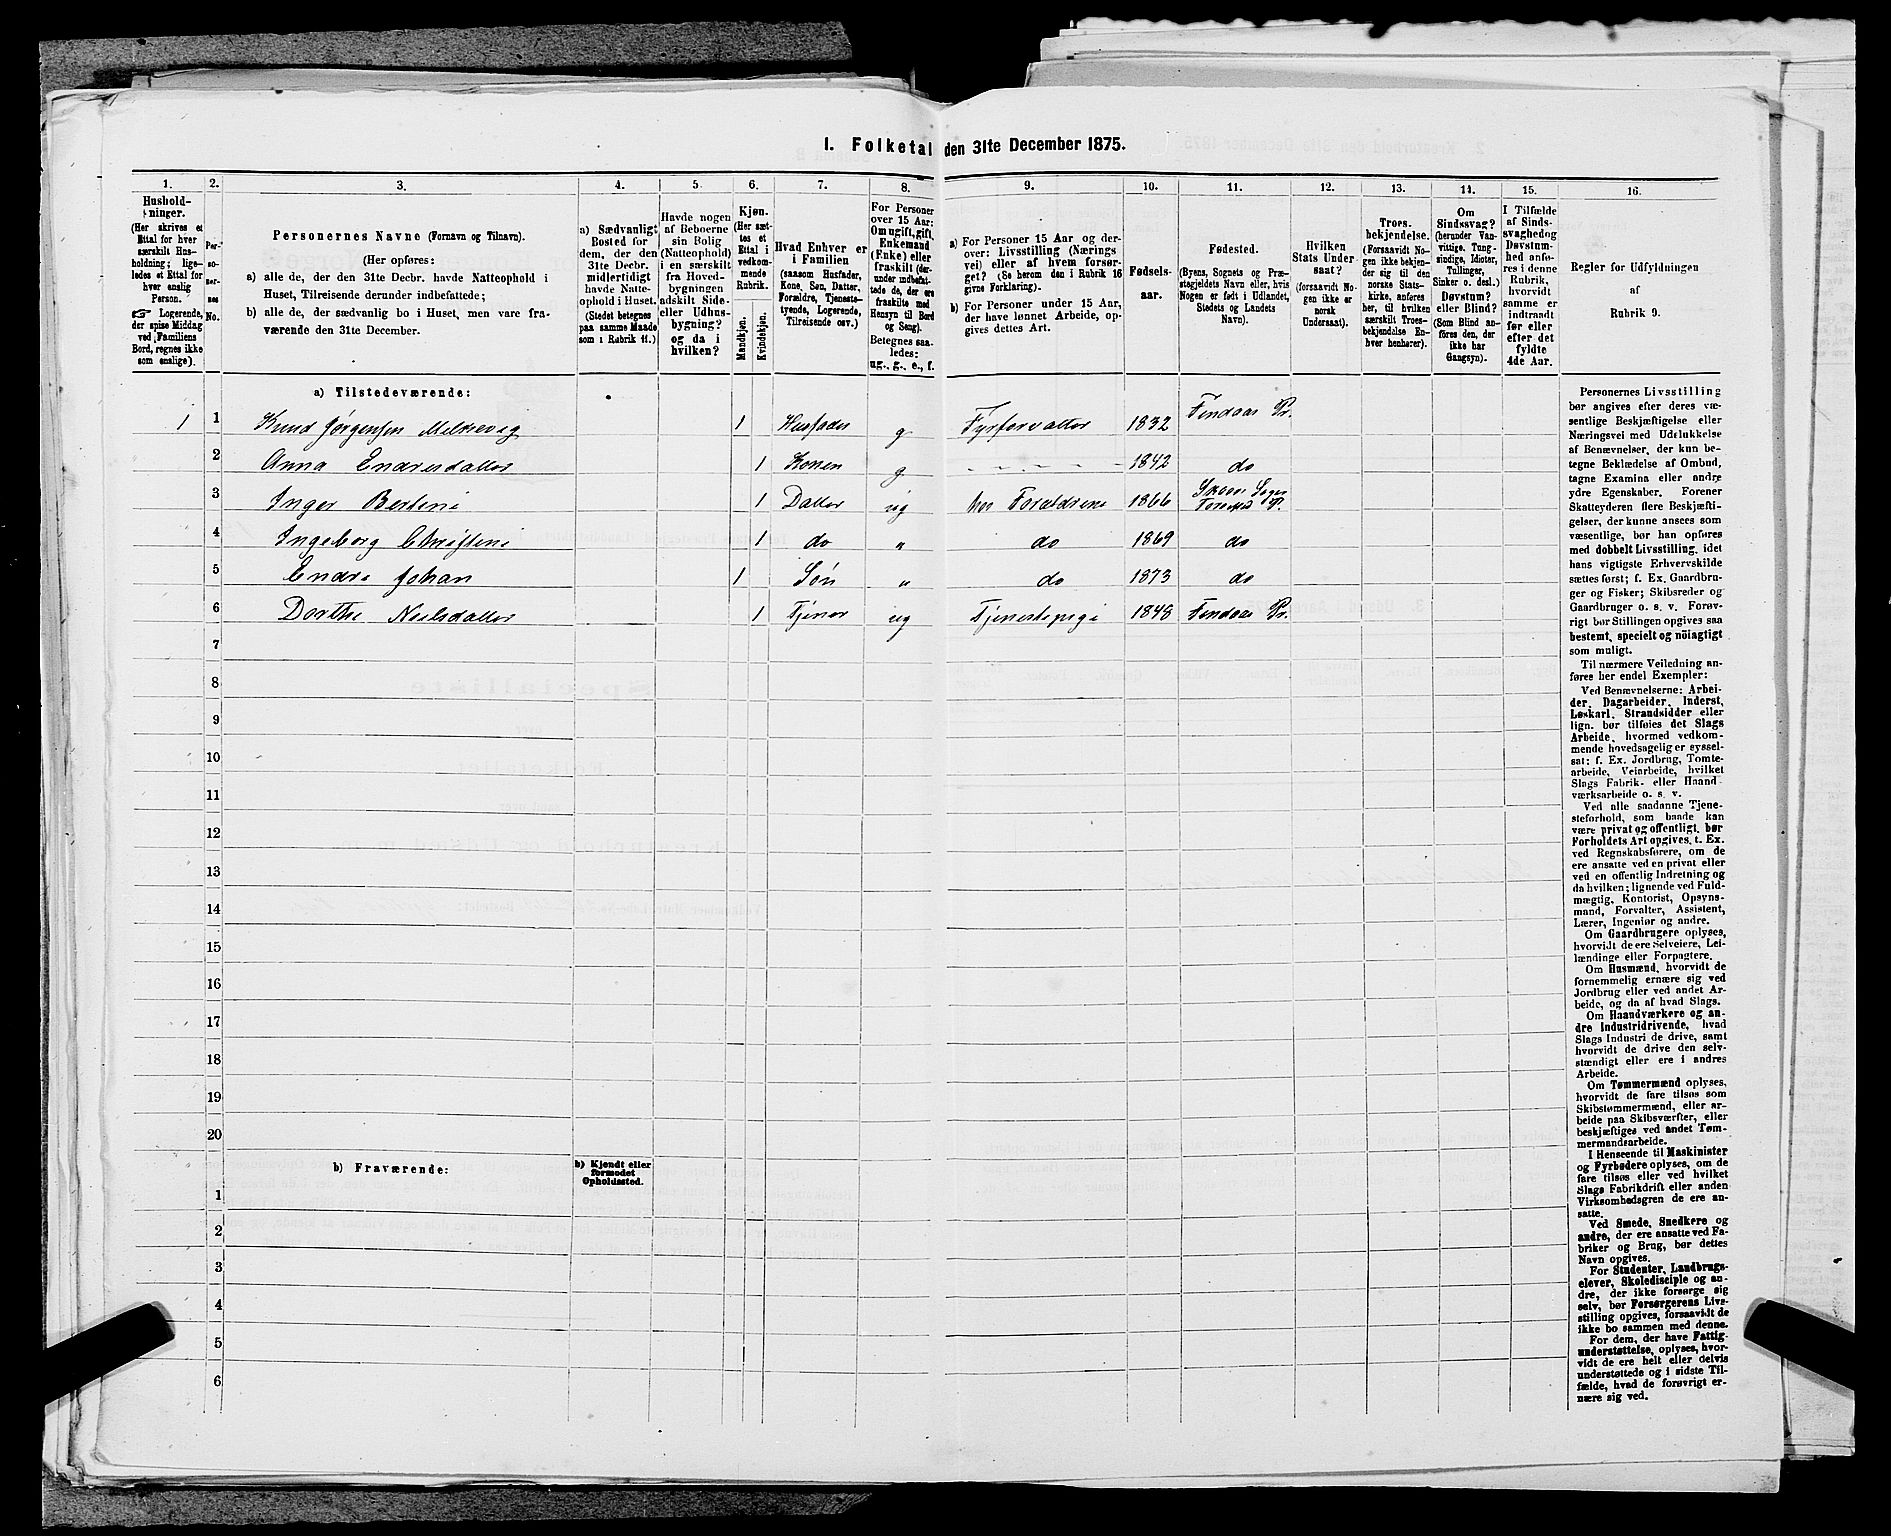 I. Folketal den 31te December 1875.
1. 2. 3. 4. 5. 6. 7. 8. 9. 10. 11. 12. 13. 14. 15. 16.
Hushold-
ninger.
(Her skrives et
Ettal for hver
særskilt Hus-
holdning; lige-
ledes et Ettal for
hver enslig
Person.
☞ Logerende,
der spise Middag
ved Familiens
Bord, regnes ikke
som enslige).
Per-
so-
ner-
nes
No.
Personernes Navne (Fornavn og Tilnavn).
(Her opføres:
a) alle de, der den 31te Decbr. havde Natteophold i
Huset, Tilreisende derunder indbefattede;
b) alle de, der sædvanlig bo i Huset, men vare fra-
værende den 31te December.
a) Sædvanligt
Bosted for
dem, der den
31te Decbr.
midlertidigt
havde Natte-
ophold i Huset.
(Stedet betegnes
paa samme Maade
som i Rubrik 11.)
Havde nogen
af Beboerne
sin Bolig
(Natteophold)
i en særskilt
fra Hoved-
bygningen
adskilt Side-
eller Udhus-
bygning?
og da i
hvilken?
Kjøn.
(Her sæt-
tes et
Ettal i
vedkom-
mende
Rubrik.
Mandkjøn.
Kvindekjøn.
Hvad Enhver er
i Familien
(saasom Husfader,
Kone, Søn, Datter,
Forældre, Tjeneste-
tyende, Logerende,
Tilreisende osv.)
For Personer
over 15 Aar:
Om ugift, gift,
Enkemand
(Enke) eller
fraskilt (der-
under indbefat-
tede de, der ere
fraskilte med
Hensyn til Bord
og Seng).
Betegnes saa-
ledes:
ug., g., e., f.
a) For Personer 15 Aar og der-
over: Livsstilling (Nærings
vei) eller af hvem forsør-
get? (Se herom den i Rubrik 16
givne Forklaring).
b) For Personer under 15 Aar,
der have lønnet Arbeide, op-
gives dettes Art.
Fødsels-
aar.
Fødested.
(Byens, Sognets og Præ-
stegjeldets Navn eller, hvis
Nogen er født i Udlandet,
Stedets og Landets
Navn).
Hvilken
Stats Under
saat?
(forsaavidt No-
gen ikke er
norsk
Undersaat).
Troes-
bekjendelse.
(Forsaavidt No-
gen ikke bekjen-
der sig til den
norske Stats-
kirke, anføres
her, til hvilken
særskilt Troes-
bekjendelse En-
hver henhører).
Om
Sindssvag?
(herunder Van-
vittige, Tung-
sindige, Idioter,
Tullinger,
Sinker o. desl.)
Døvstum?
eller Blind?
(Som Blind an-
føres den, der
ikke har
Gangsyn).
I Tilfælde
af Sinds-
svaghed og
Døvstum-
hed anfø-
res i denne
Rubrik,
hvorvidt
samme er
indtraadt
før eller
efter det
fyldte
4de Aar.
Regler for Udfyldningen
af
Rubrik 9.
a) Tilstedeværende:
1 1 Knud Jørgensen Melkevig 1 Husfader g Fyrforvalter 1832 Findaas Pr.
2 Anna Endresdatter 1 Konen g 1842 do
3 Inger Bertine 1 Datter ug hos Forældrene 1866
4 Ingeborg Christine 1 do " do 1869 do
5 Endre Johan 1 Søn " do 1873 do
6 Dorthe Neilsdatter 1 Tjener ug Tjenestepige 1848 Findaas Pr.
7
8
9
10
11
12
13
14
15
16
17
18
19
20
b) Fraværende:
b) Kjendt eller
formodet
Opholdssted.
1
2
3
4
5
6
Personernes Livsstilling
bør angives efter deres væ-
sentlige Beskjæftigelse eller
Næringsvei med Udelukkelse
af Benævnelser, der kun be-
tegne Beklædelse af Ombud,
tagne Examina eller andre
ydre Egenskaber. Forener
Skatteyderen flere Beskjæfti-
gelser, der kunne ansees som
væsentlige, bør han opføres
med dobbelt Livsstilling, idet
hans vigtigste Erhvervskilde
sættes først; f. Ex. Gaardbru-
ger og Fisker; Skibsreder og
Gaardbruger o. s. v. Forøv-
rigt bør Stillingen opgives saa
bestemt, specielt og nöiagtigt
som muligt.
Til nærmere Veiledning an-
føres her endel Exempler:
Ved Benævnelserne: Arbei-
der, Dagarbeider, Inderst,
Løskarl, Strandsidder eller
lign. bør tilføies det Slags
Arbeide, hvormed vedkom-
mende hovedsagelig er syssel-
sat; f. Ex. Jordbrug, Tomte-
arbeide, Veiarbeide, hvilket
Slags Fabrik- eller Haand
værksarbeide o. s. v.
Ved alle saadanne Tjene-
steforhold, som baade kan
være privat og offentligt, bør
Forholdets Art opgives, t. Ex.
ved Regnskabsførere, om de
ere ansatte ved en privat eller
ved en offentlig Indretning og
da hvilken; lignende ved Fuld-
mægtig, Kontorist, Opsyns-
mand, Forvalter, Assistent,
Lærer, Ingeniør og andre.
Om Gaardbrugere oplyses,
hvorvidt de ere Selveiere, Lei-
lændinge eller Forpagtere.
Om Husmænd, hvorvidt de
fornemmelig ernære sig ved
Jordbrug eller ved andet Ar-
beide, og da af hvad Slags.
Om Haandværkere og an-
dre Industridrivende, hvad
Slags Industri de drive, samt
hvorvidt de drive den selv-
stændigt eller ere i andres
Arbeide.
Om Tømmermænd oplyses,
hvorvidt de fare tilsøs som
Skibstømmermænd, eller ar-
beide paa Skibsværfter, eller
beskjæftiges ved andet Tøm-
mermandsarbeide.
I Henseende til Maskinister
og Fyrbødere oplyses, om de
fare tilsøs eller ved hvilket
Slags Fabrikdrift eller anden
Virksomhedsgren de ere an-
satte.
Ved Smede, Snedkere og
andre, der ere ansatte ved Fa-
briker og Brug, bør dettes
Navn opgives.
For Studenter, Landbrugs-
elever, Skoledisciple og an-
dre, der ikke forsørge sig
selv, bør Forsørgerens Livs-
stilling opgives, forsaavidt de
ikke bo sammen med denne.
For dem, der have Fattig-
understøttelse, oplyses, hvor-
vidt de ere helt eller delvis
understøttede og i sidste Til-
fælde, hvad de forøvrigt er-
nære sig ved.